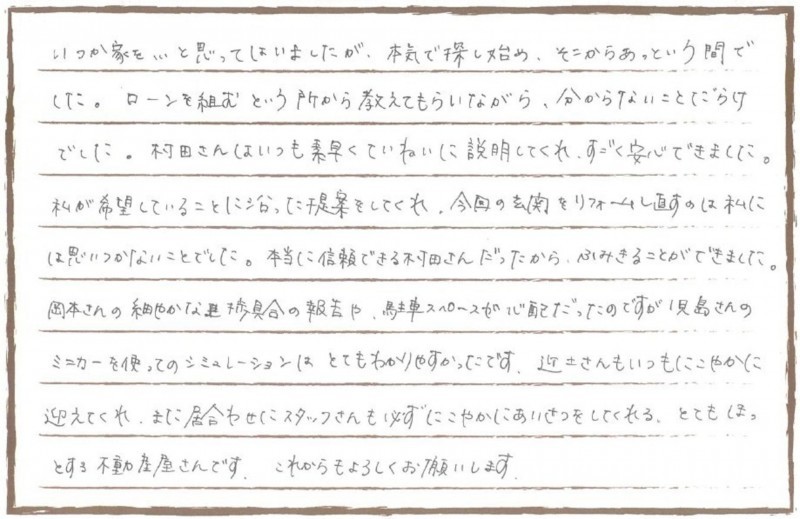 いつか家を…と思ってはいましたが、本気で探し始め、そこからあっという間で
した。ローンを組むという所から教えてもらいながら、分からないことだらけ
でした。村田さんはいつも素早くていねいに説明してくれ、すごく安心できました。
私が希望していることに沿った提案をしてくれ、今回の玄関をリフォームし直すのは私に
は思いつかないことでした。本当に信頼できる村田さんだったから、ふみきることができました。
岡本さんの細やかな進捗具合の報告や、駐車スペースが心配だったのですが児島さんの
ミニカーを使ってのシミュレーションは とてもわかりやすかったです。近土さんもいつもにこやかに
迎えてくれ、また居合わせたスタッフさんも必ずにこやかにあいさつをしてくれる、とてもほっ
とする不動産屋さんです。これからもよろしくお願いします。